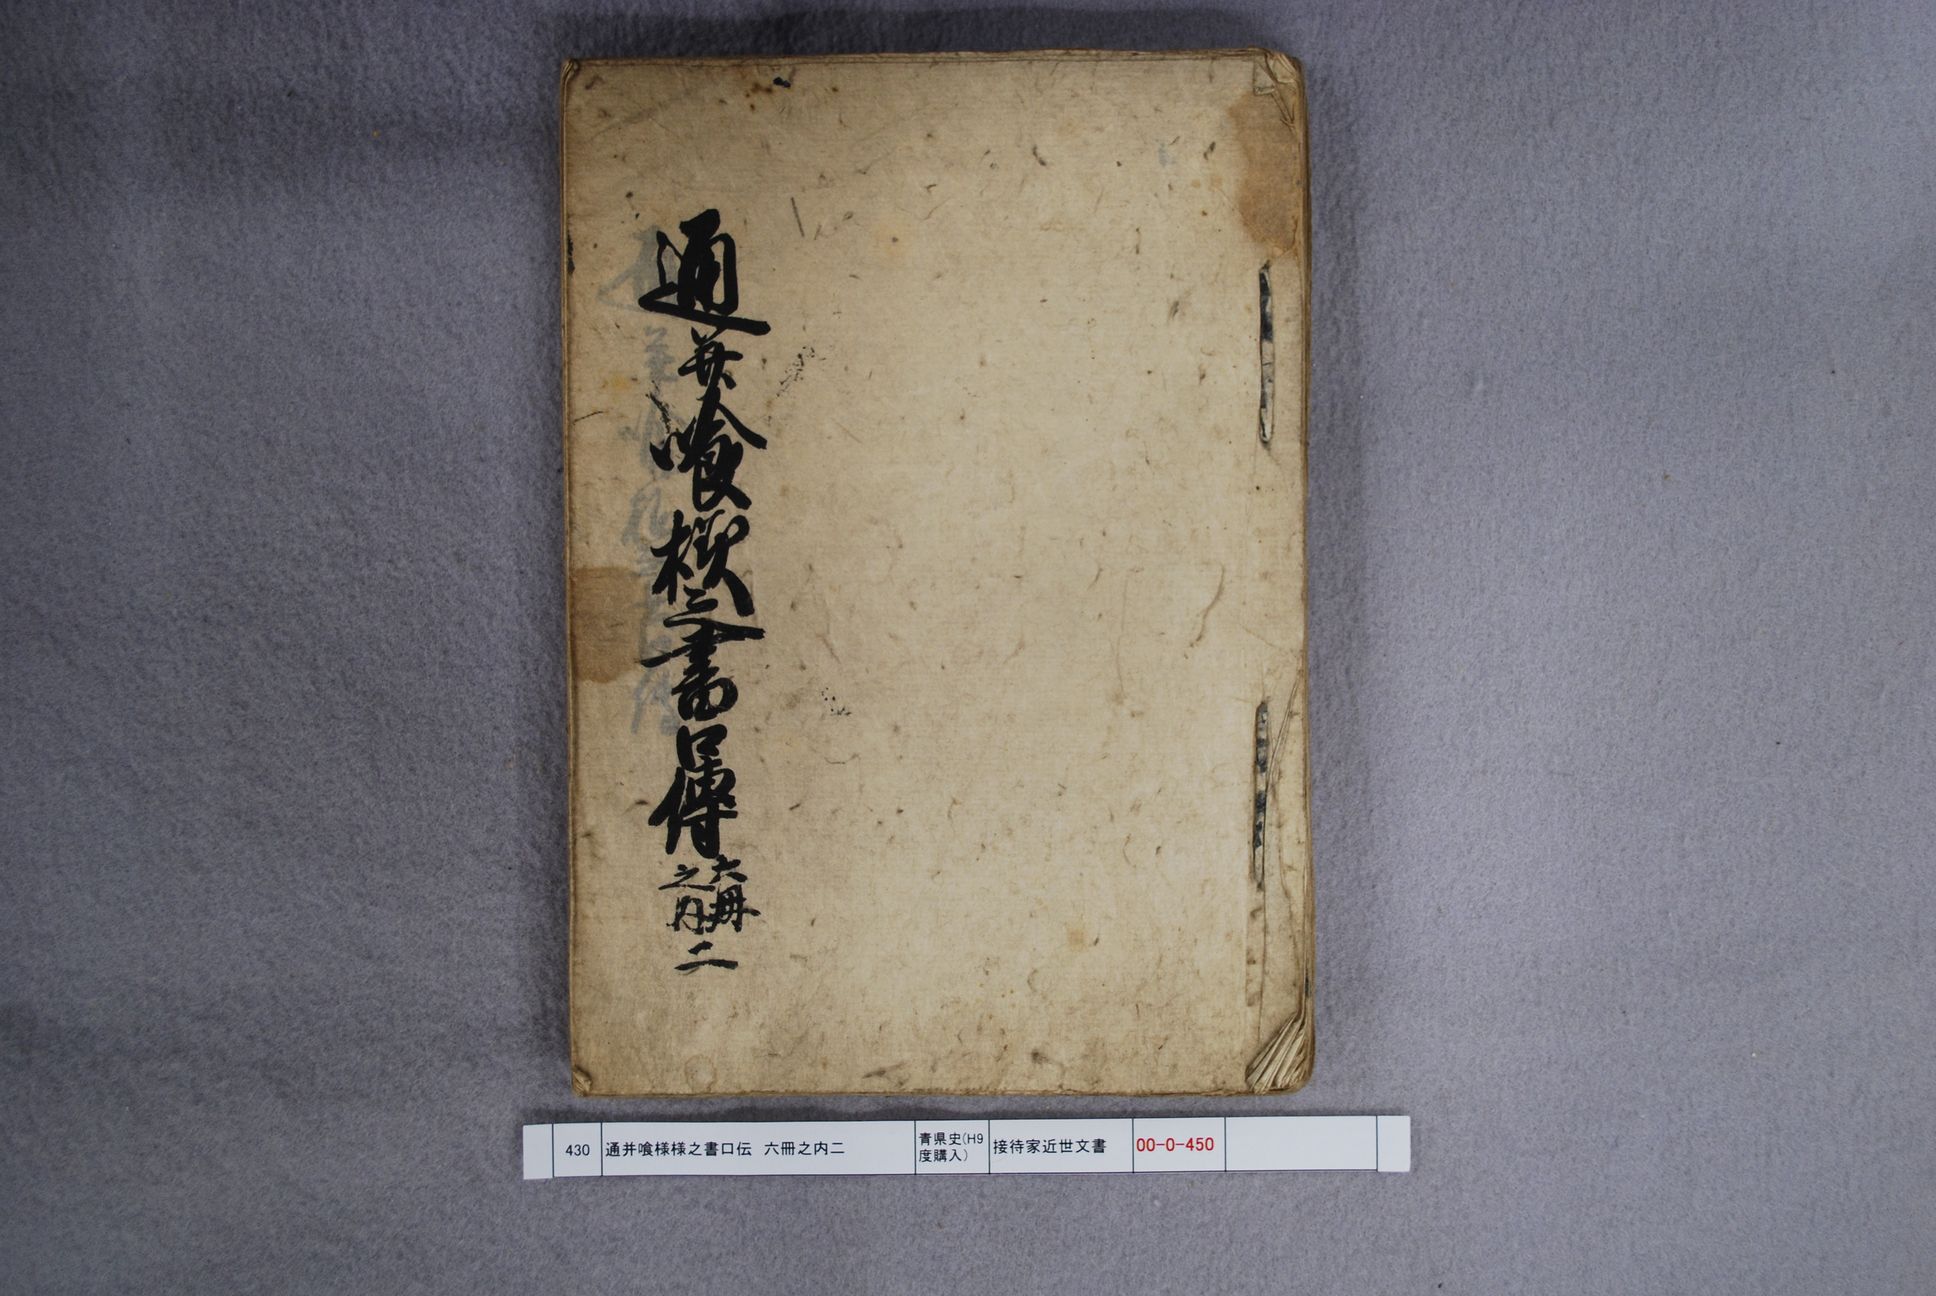 通并喰様之書口傳 六冊之内 二
430 通并喰様様之書口伝 六冊之内二 青県史(H9度購入) 接待家近世文書 00-0-450